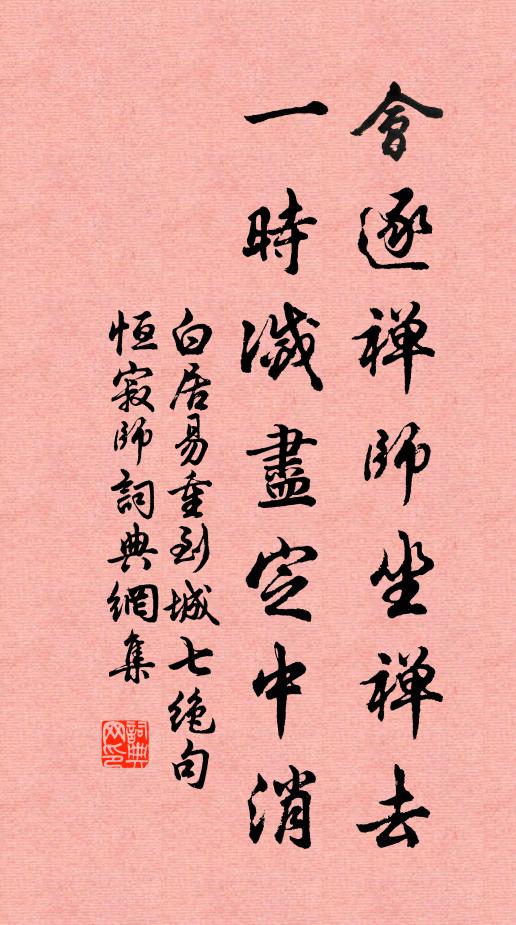 會逐禪師坐禪去
一時滅盡定中消
白居易重到城七絕句
恆寂師詞典網集
詞典网印